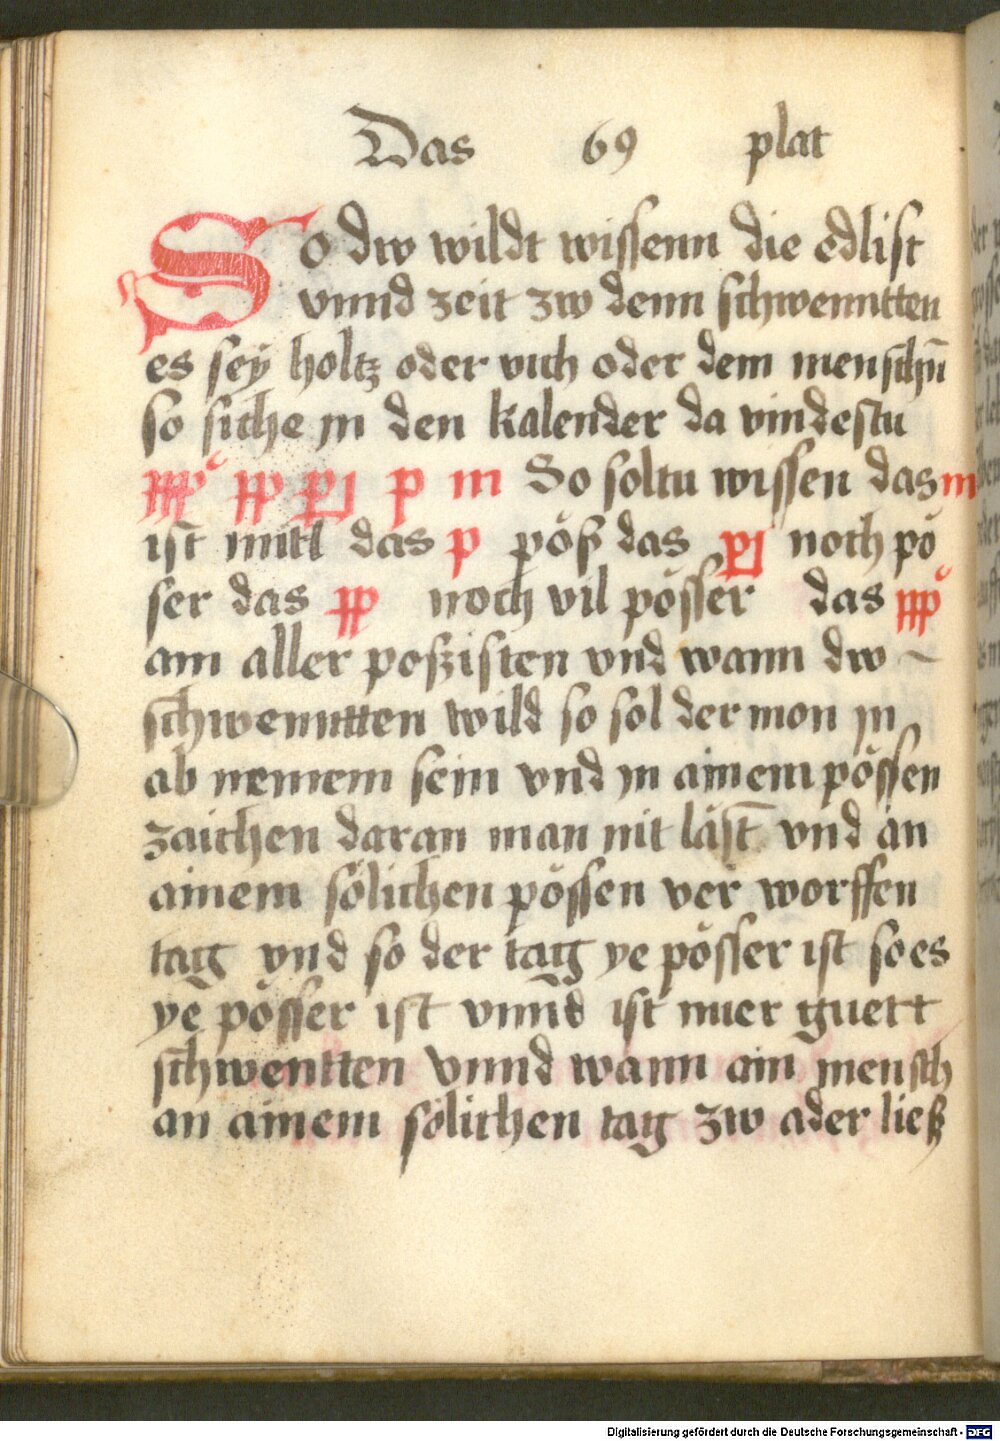 Das 69 plat
So dw wildt wissenn die edlist
vnnd zeit zw denn schwenntten
es seÿ holtz oder vich oder dem menschn̄
so siche jn den kalender da vindestu
pppͦ pp pj p m So soltu wissen das m
ist mitl das p pöß das pj noch pö
ser das pp noch vil pösser das pppͦ
am aller poßisten vnd wann dw ~
schwenntten wild so sol der mon jn
ab nemem sein vnd jn ainem pössen
zaichen daran man nit läst vnd an
ainem sölichen pössen ver worffen
tag vnd so der tag ye pösser ist so es
ye pösser ist vnnd ist mier guett
schwentten vnnd wann ain mensch
an ainem sölichen tag zw ader ließ
Digitalisierung gefördert durch die Deutsche Forschungsgemeinschaft - DFG